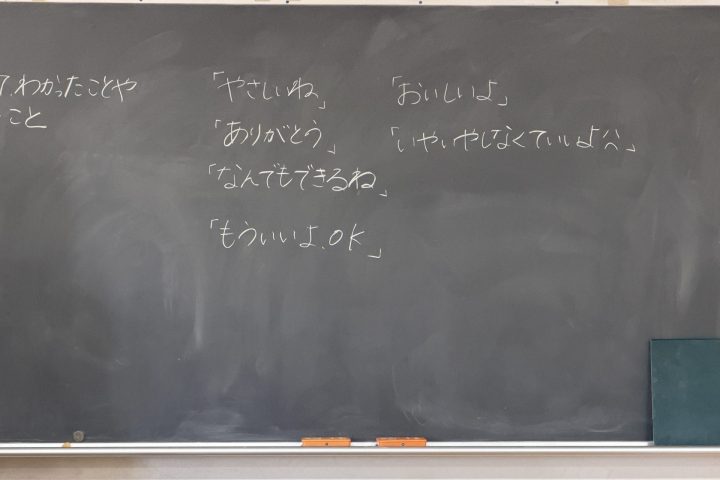 て、わかったことや
こと
「やさしいね」
「ありがとう」
「なんでもできるね」
「もういいよ、OK」
「おいしいよ」
「いやいやしなくていいよ^^」